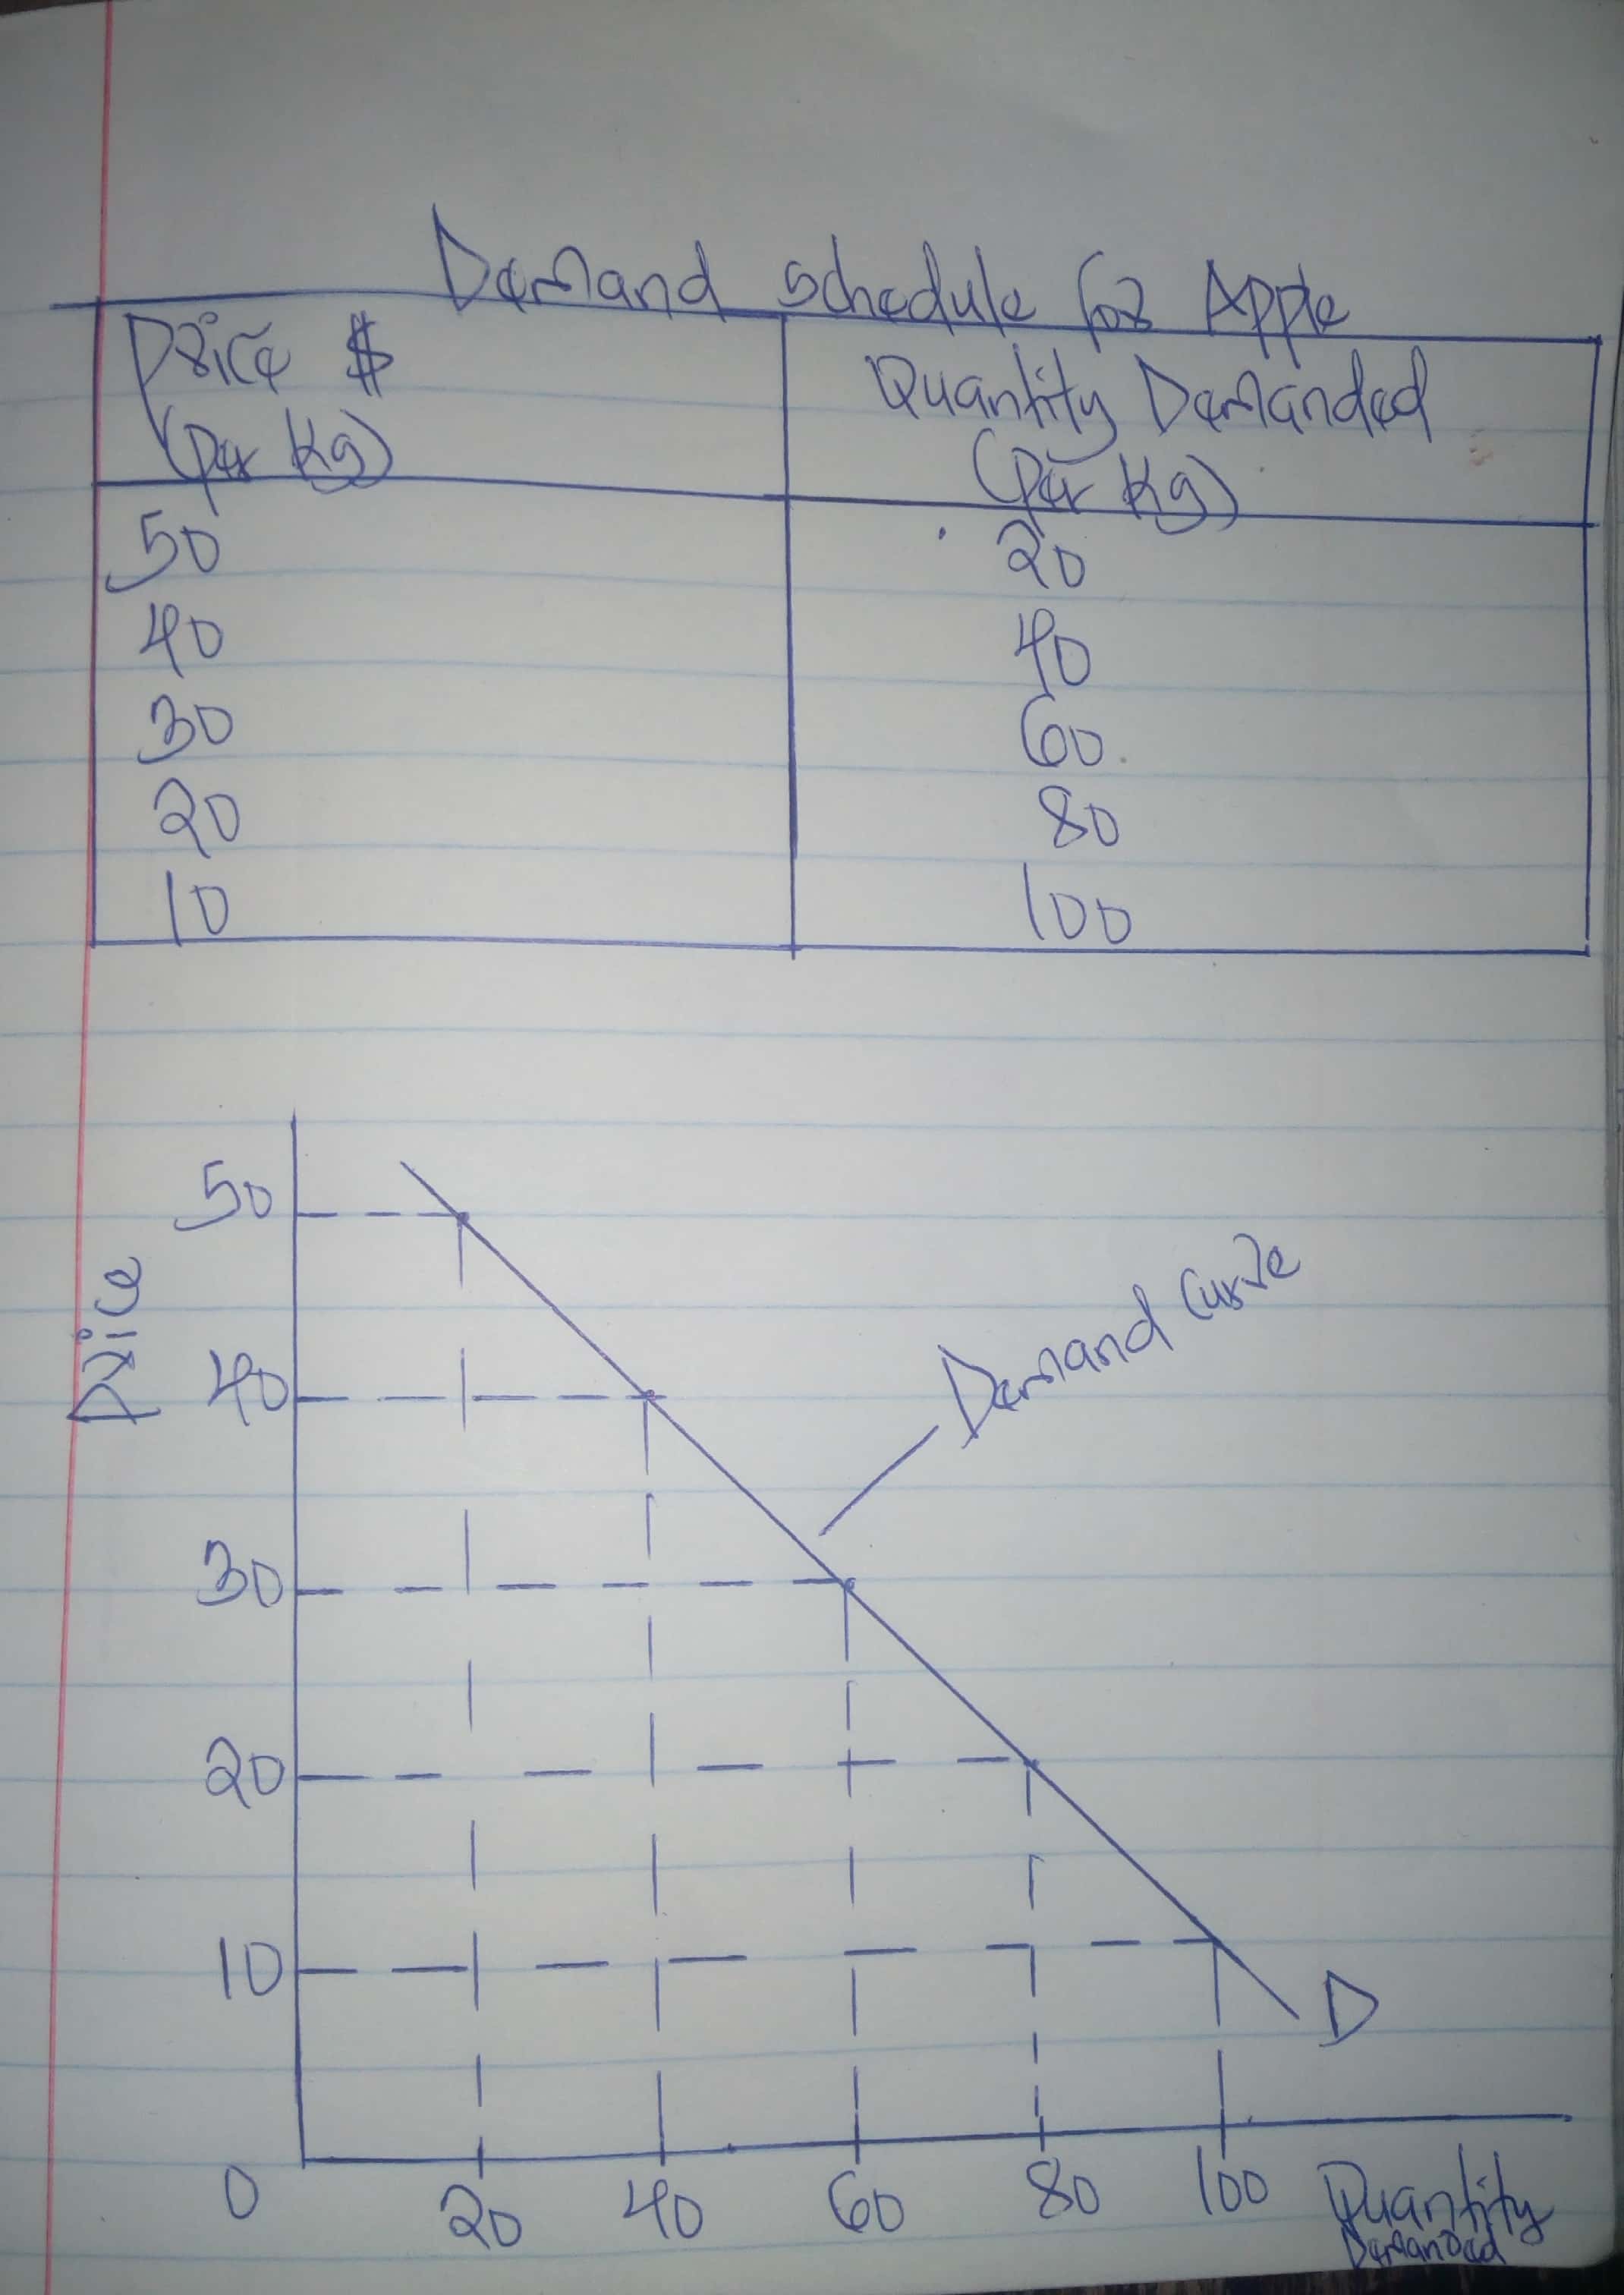 Demand schedule for Apple
Price $ Quantity Demanded
(per kg) (per kg)
50 20
40 40
30 60
20 80
10 100
50
Price
40
30
20
10
Demand curve
D
0 20 40 60 80 100 Quantity
Demanded